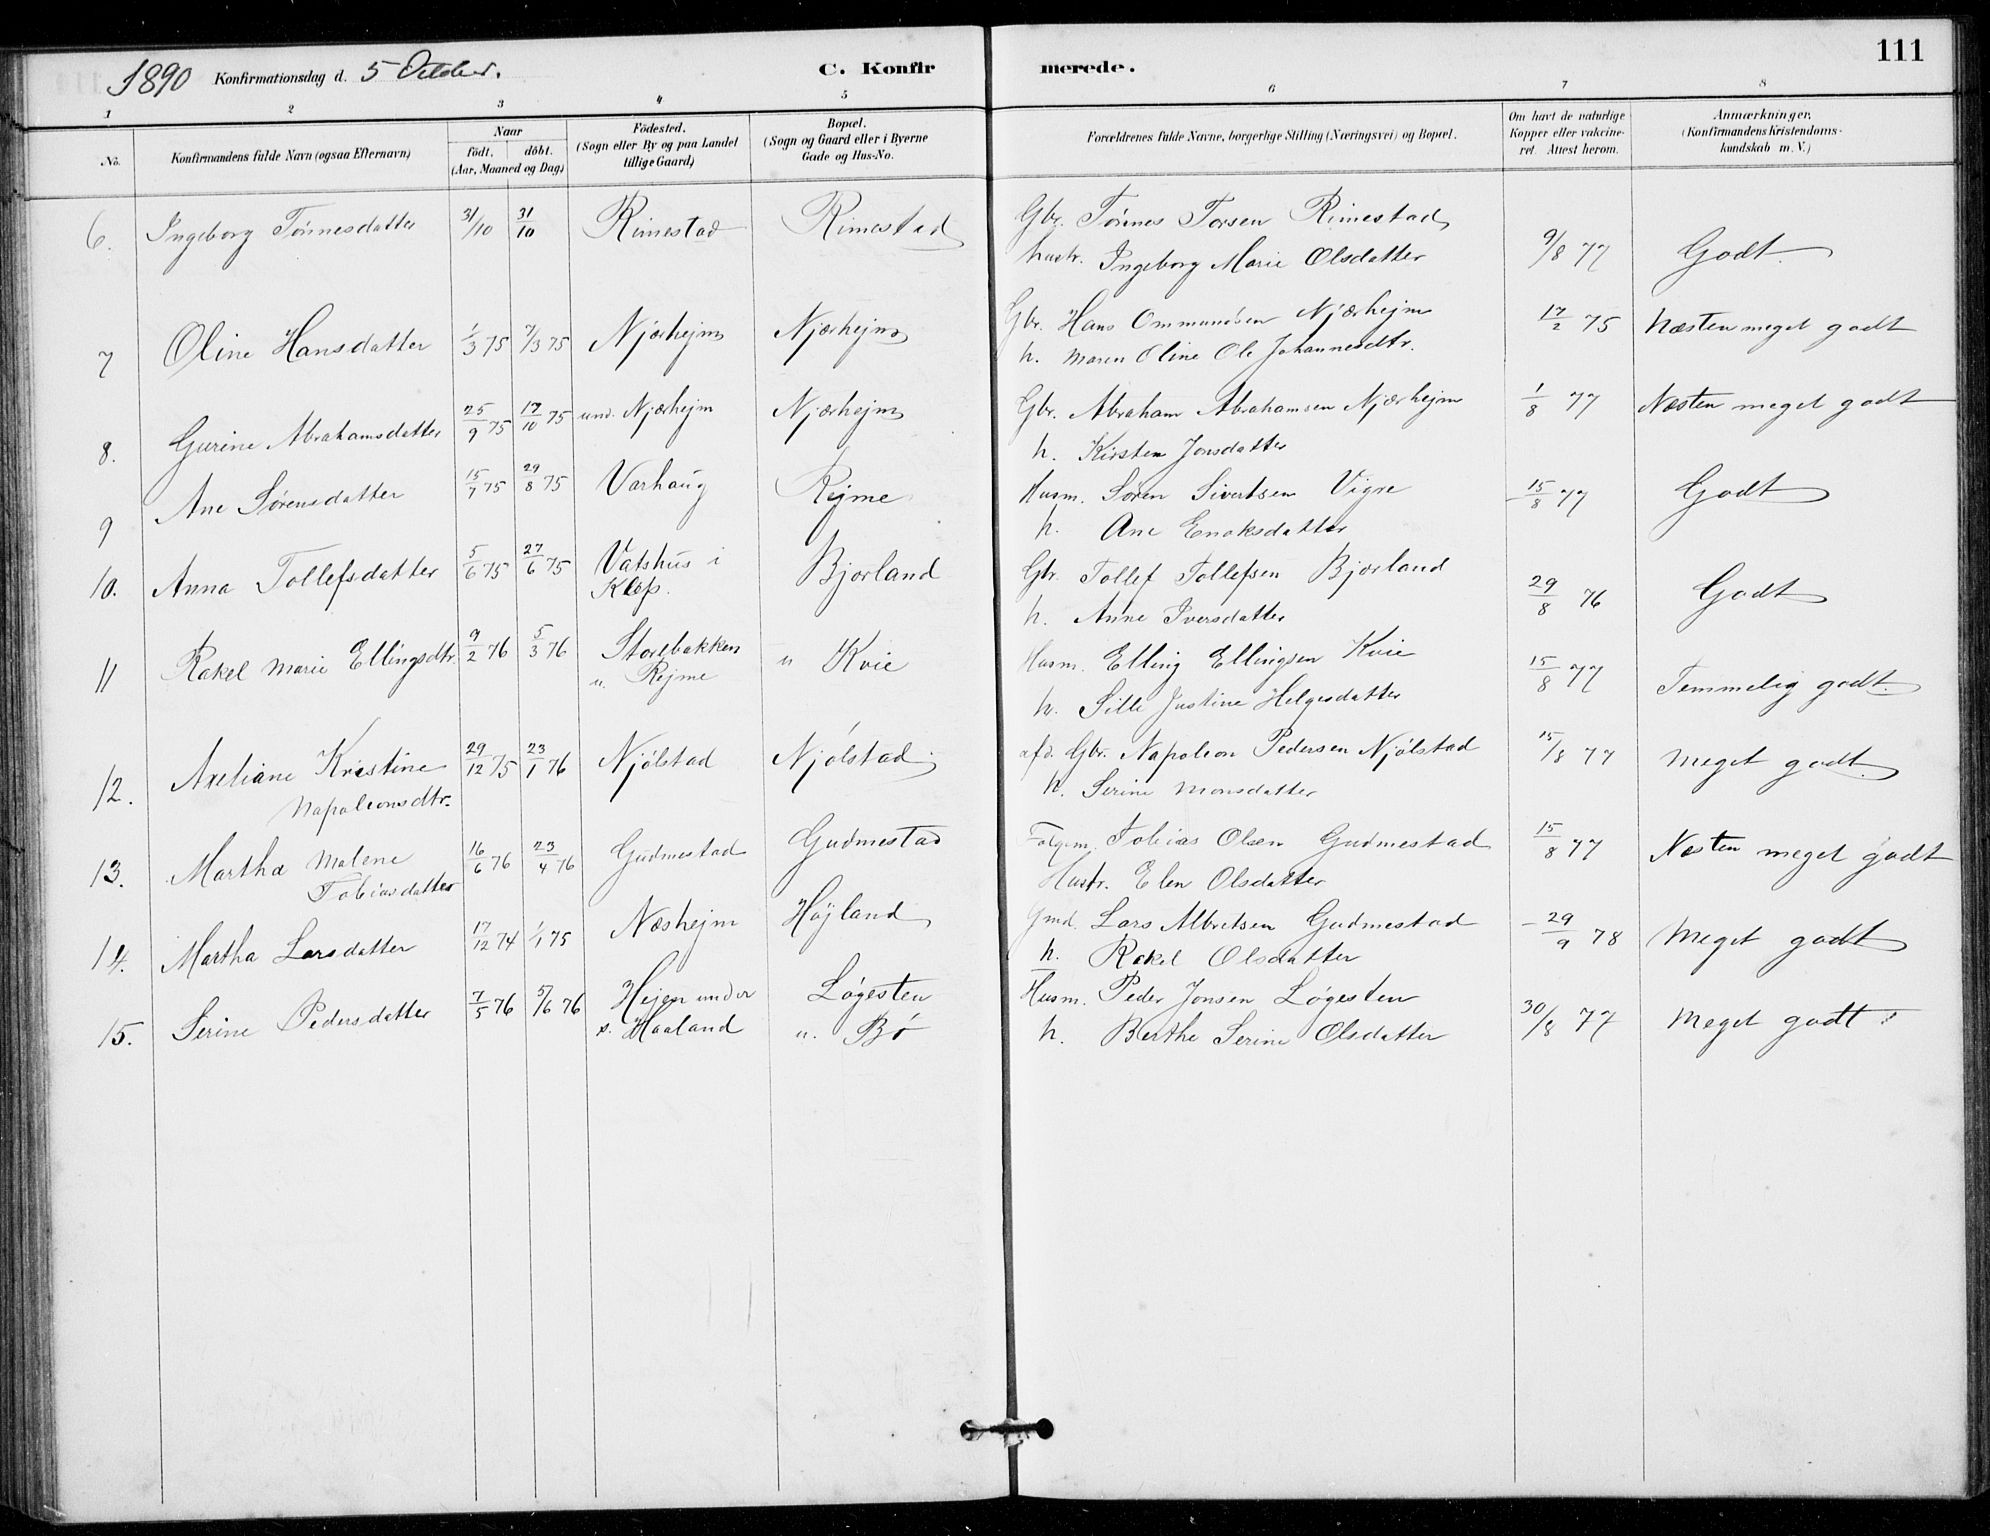 111
1890 Konfirmationsdag d. 5 October. C. Konfirmerede.
1 2 3 4 5 6 7 8
No. Konfirmandens fulde Navn (ogsaa Efternavn) Naar födt. döbt. (Aar, Maaned og Dag) Födested. (Sogn eller By og paa Landet tillige Gaard) Bopæl. (Sogn og Gaard eller i Byerne Gade og Hus-No. Forældrenes fulde Navne, borgerlige Stilling (Næringsvei) og Bopæl. Om havt de naturlige Kopper eller vakcineret. Attest herom. Anmærkninger. (Konfirmandens Kristendomskundskab m. V.)
6. Ingeborg Tönnesdatter 31/10 31/10 Rimestad Rimestad Gbr. Tönnes Torsen Rimestad 9/8 77 Godt.
hustr. Ingeborg Marie Olsdatter
7 Oline Hansdatter 1/3 75 7/3 75 Njærhejm Njærhejm Gbr. Hans Ommundsen Njærhejm 17/2 75 Næsten meget godt
h. Maren Oline Ole Johannesdtr.
8. Gurine Abrahamsdatter 25/9 75 17/10 75 und. Njærhejm Njærhejm Gbr. Abraham Abrahamsen Njærhejm 1/8 77 Næsten meget godt
h. Kirsten Jonsdatter
9 Ane Sørensdatter 15/7 75 29/8 75 Varhaug Rejme Husm. Sören Sivertsen Vigre 15/8 77 Godt
h. Ane Enoksdatter
10. Anna Tollefsdatter 5/6 75 27/6 75 Vatshus i Bjorland Gbr. Tollef Tollefsen Bjorland 29/8 76 Godt
Klep. h. Anne Iversdatter
11 Rakel Marie Ellingsdtr. 9/2 76 5/3 76 Storebakken u Kvie Husm. Elling Ellingsen Kvie 15/8 77 Temmelig godt.
u. Rejme h. Sille Justine Helgesdatter
12. Axeliane Kristine 29/12 75 23/1 76 Njölstad Njölstad afd. Gbr. Napoleon Pedersen Njölstad 15/8 77 Meget godt
Napoleonsdtr. h. Serine Monsdatter
13. Martha Malene 16/6 76 23/4 76 Gudmestad Gudmestad Tobias Olsen Gudmestad 15/8 77 Næsten meget godt
Tobiasdatter Hustr. Elen Olsdatter
14. Martha Larsdatter 17/12 74 1/1 75 Næshejm Højland Gmd. Lars Albretsen Gudmestad 29/9 78 Meget godt
h. Rakel Olsdatter
15. Serine Pedersdatter 7/5 76 5/6 76 Hejen under Løgesten Husm. Peder Jonsen Løgesten 30/8 77 Meget godt
s. Haaland u. Bø h. Berthe Serine Olsdatter